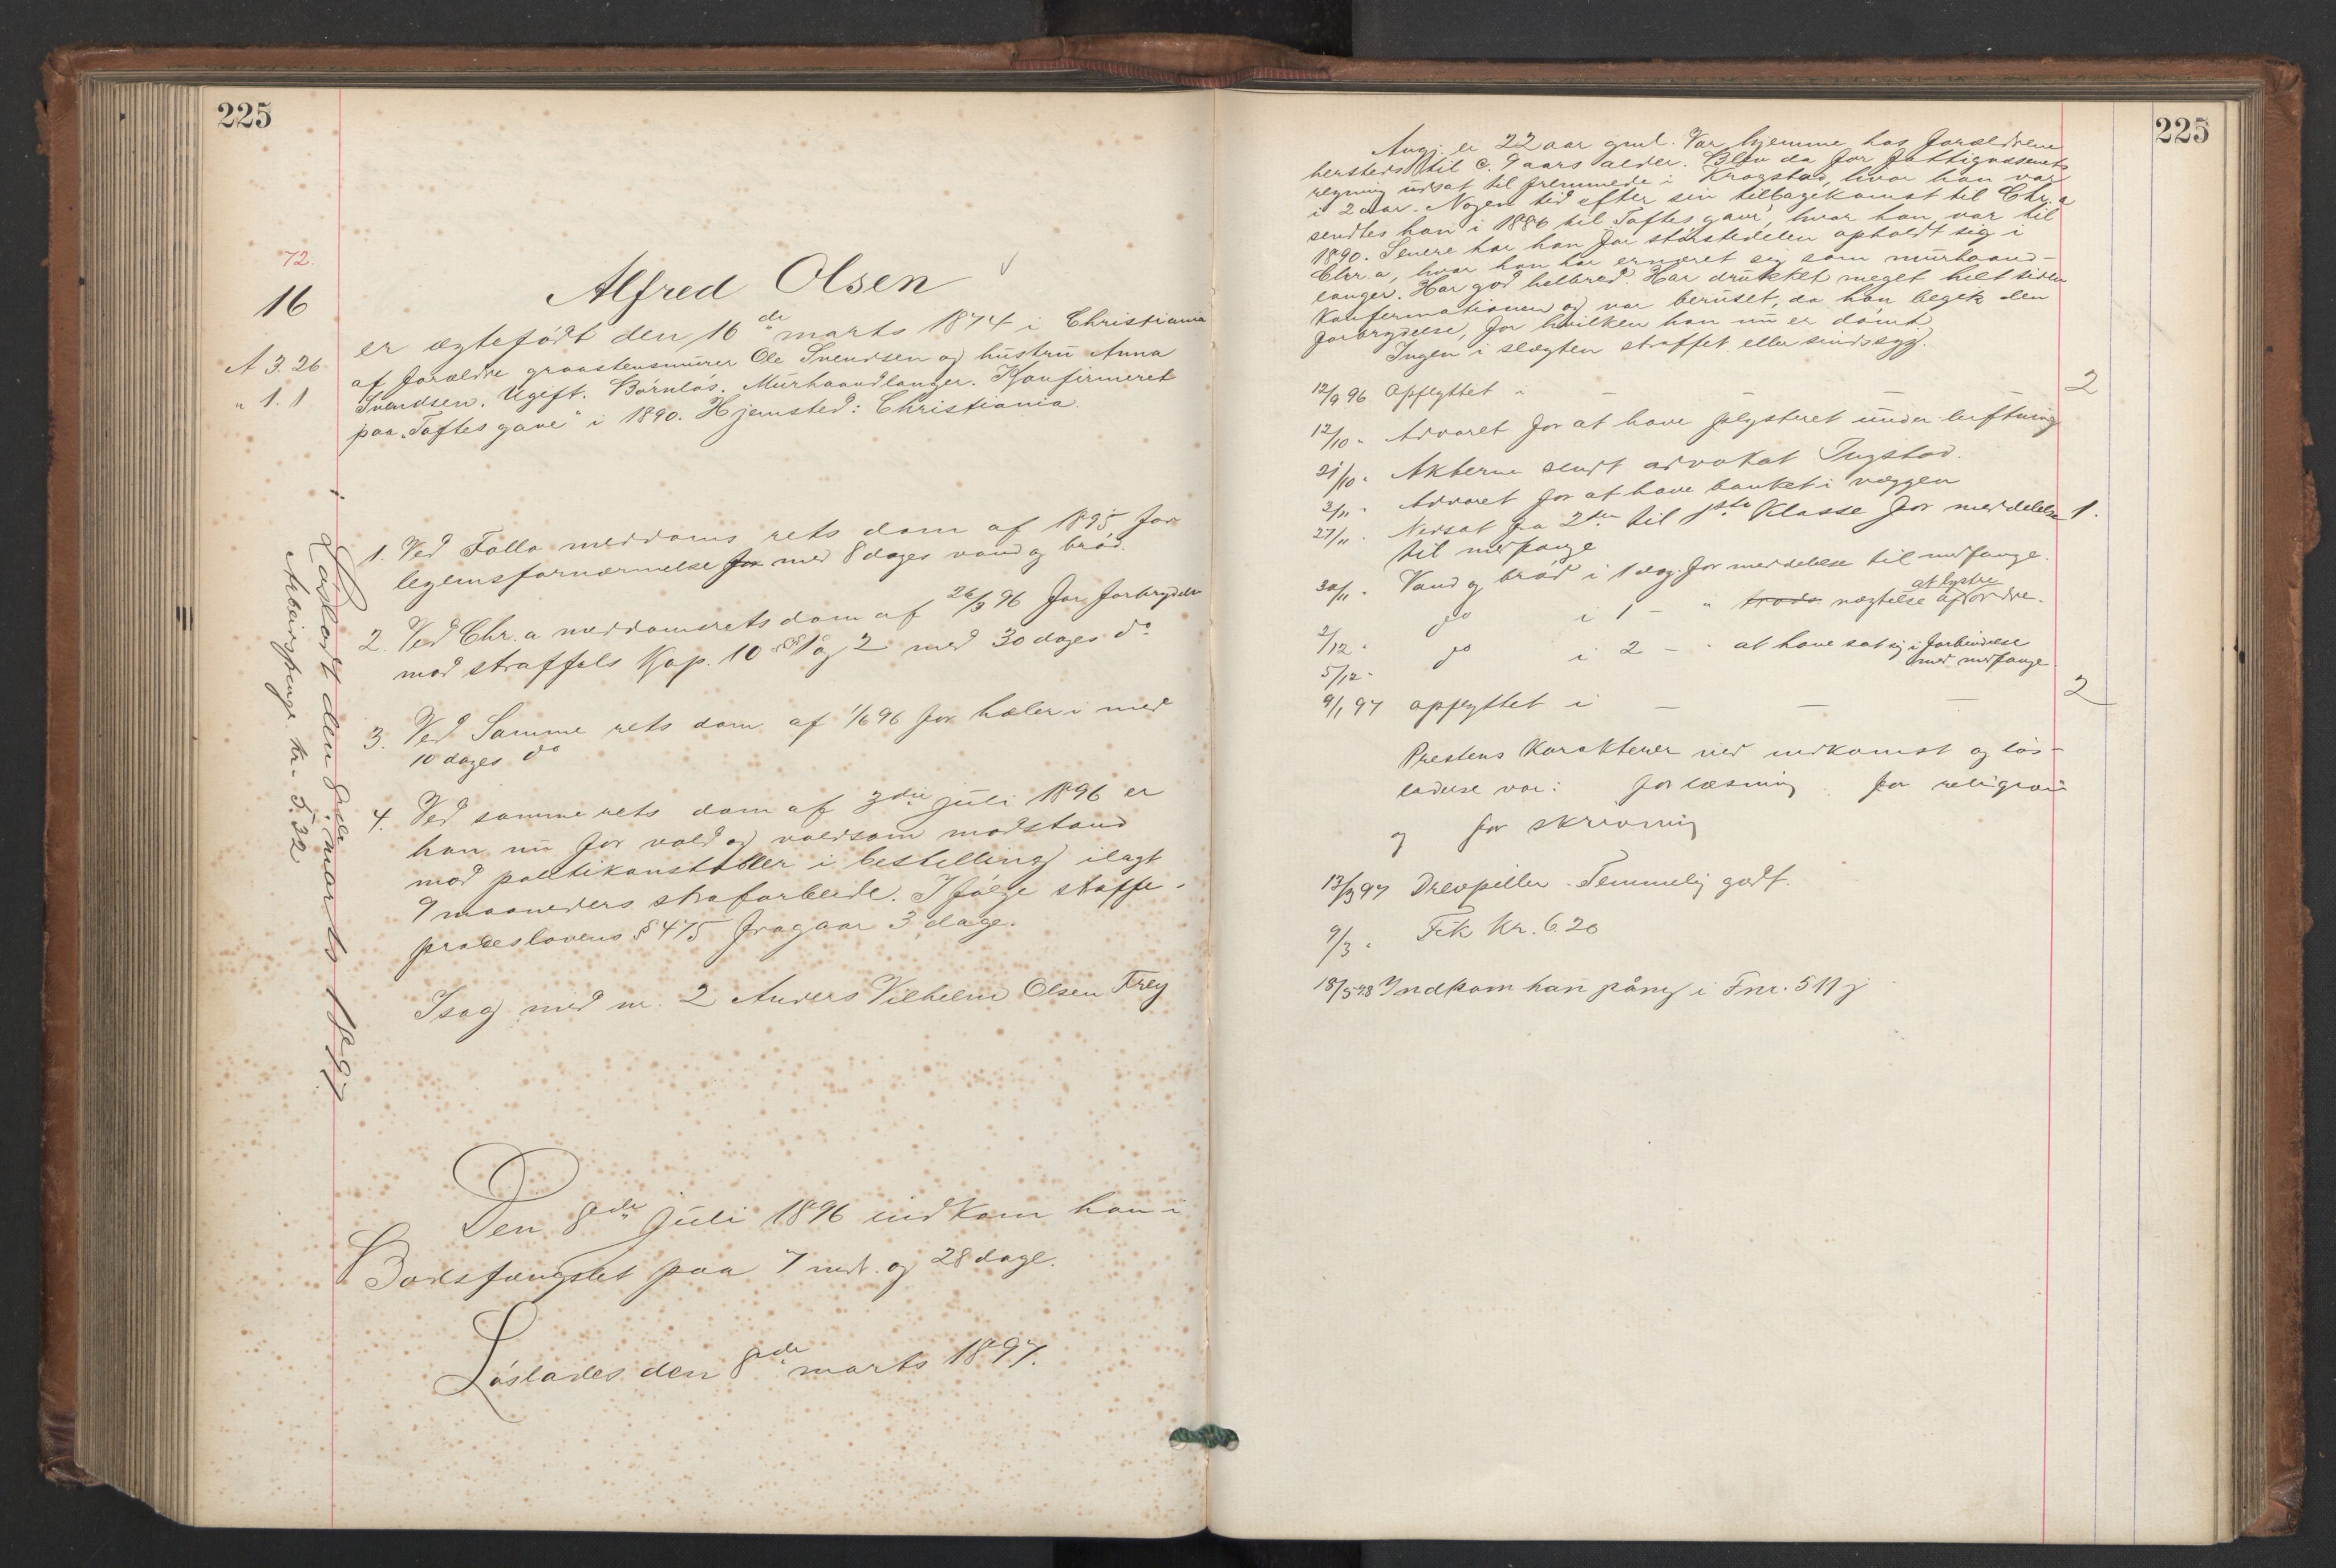 225
72.
16
A 3.26
" 1.1
Alfred Olsen
er ægtefødt den 16de marts 1874 i Christiania
af forældre graastensmurer Ole Svendsen og hustru Anna
Svendsen. Ugift. Barnløs. Murhaandlanger. Konfirmeret
paa "Toftes gave" i 1890. Hjemsted: Christiania.
1. Ved Follo meddoms rets dom af 1895 for
legemsfornærmelse for med 8 dages vand og brød.
2. Ved Chr.a meddomsrets dom af 26/3 96 for forbrydelse
mod straffels Kap. 10 §§ 1 og 2 med 30 dages do
3. Ved Samme rets dom af 1/6 96 for hæleri med
10 dages do
4. Ved samme rets dom af 3die juli 1896 er
han nu for vold og voldsom modstand
mod politikonstabler i bestilling ilagt
9 maaneders strafarbeide. Ifølge straffe-
proceslovens § 475 fragaar 3 dage.
I sag med nr. 2 Anders Vilhelm Olsen Frey
Den 8de juli 1896 indkom han i
Bodsfængslet paa 7 mdr. og 28 dage.
Løslades den 8de marts 1897.
Løsladt den 8de marts 1897
Arbeidspenge kr. 5.32
225
Ang. er 22 aar gml. Var hjemme hos forældrene
hersteds til c. 9 aars alder. Blev da for fattigvæsenets
regning udsat til fremmede i Kragstad, hvor han var
i 2 aar. Nogen tid efter sin tilbagekomst til Chr.a
sendtes han i 1886 til Toftes gave, hvor han var til
1890. Senere har han for størstedelen opholdt sig i
Chr.a, hvor han har ernæret sig som murhaand-
langer. Har god helbred. Har drukket meget helt siden
Konfirmationen og var beruset, da han begik den
forbrydelse, for hvilken han nu er dømt
Ingen i slægten straffet eller sindssyg.
12/9 96 Opflyttet i — — — 2
12/10 " Advaret for at have plystret under luftning
21/10 " Akterne sendt advokat Ingstad.
2/11 " Advaret for at have banket i væggen
27/11 " Nedsat fra 2den til 1ste Klasse for meddelelse 1.
til medfange
30/11 " Vand og brød i 1 dag for meddelelse til medfange.
2/12 " do i 1 — " trods nægtelse af at lystre ordre.
5/12 " do i 2 — " at have sat sig i forbindelse
med medfange
9/1 97 opflyttet i — — — 2
Prestens Karakterer ved indkomst og løs-
ladelse var: for læsning for religion
og for skrivning
13/3 97 Temmelig godt.
9/3 " Fik Kr. 6.20
18/5 98 Indkom han påny i Fnr. 511 j